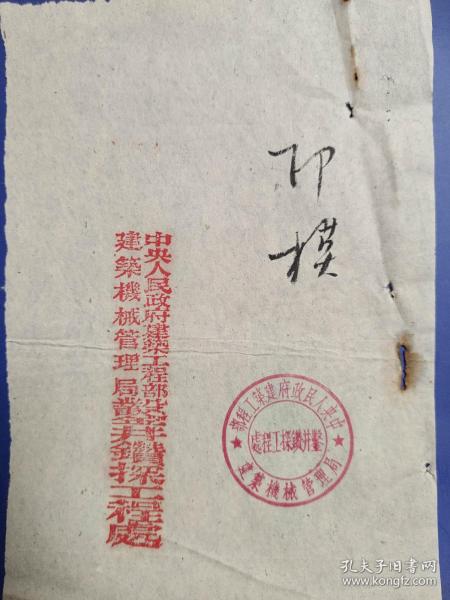 印模
中央人民政府建築工程部
建築機械管理局
鑿井鑽探工程處
中央人民政府建築工程部
鑿井鑽探工程處
建築機械管理局
孔夫子旧书网
www.kongfz.com